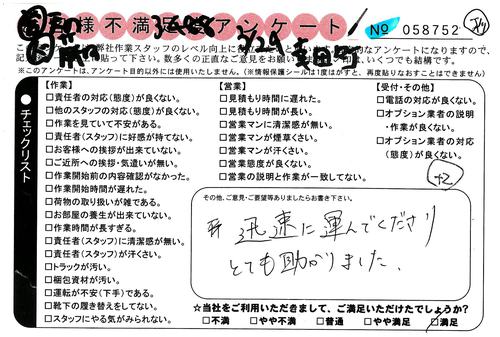 様不満足アンケート
No 058752
弊社作業スタッフのレベル向上に
に貼って下さい。数多くの正直なご意見をお願い
いつでも結構です。
※このアンケートは、アンケート目的以外には使用いたしません。(※情報保護シールは1度はがすと、再度貼りなおすことはできません)
チェックリスト
【作業】
□責任者の対応(態度)が良くない。
□他のスタッフの対応(態度)が良くない。
□作業を見ていて不安がある。
□責任者(スタッフ)に好感が持てない。
□お客様への挨拶が出来ていない。
□ご近所への挨拶・気遣いが無い。
□作業開始前の内容確認がなかった。
□作業開始時間が遅れた。
□荷物の取り扱いが雑である。
□お部屋の養生が出来ていない。
□作業時間が長すぎる。
□責任者(スタッフ)に清潔感が無い。
□責任者(スタッフ)が汗くさい。
□トラックが汚い。
□梱包資材が汚い。
□運転が不安(下手)である。
□靴下の履き替えをしてない。
□スタッフにやる気がみられない。
【営業】
□見積もり時間に遅れた。
□見積もり時間が長い。
□営業マンに清潔感が無い。
□営業マンが煙草くさい。
□営業マンが汗くさい。
□営業態度が良くない。
□営業の説明と作業が一致してない。
【受付・その他】
□電話の対応が良くない。
□オプション業者の説明
・作業が良くない。
□オプション業者の対応
(態度)が良くない。
+2
その他、ご意見・ご要望等ありましたらお書き下さい。
迅速に運んでくださり
とても助かりました。
☆当社をご利用いただきまして、ご満足いただけたでしょうか?
□不満 □やや不満 □普通 □やや満足 □満足